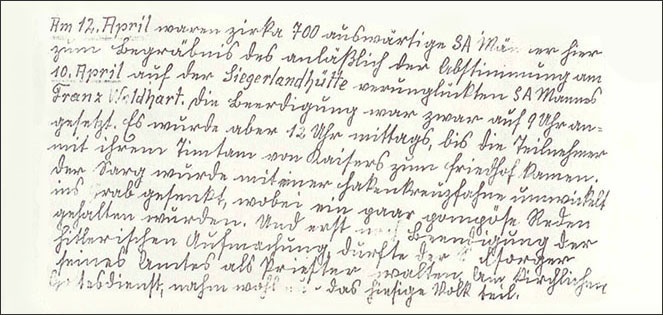 Am 12. April waren zirka 700 auswärtige SA Männer hier
zum Begräbnis des anläßlich der Abstimmung am
10. April auf der Siegerlandhütte verunglückten SA Manns
Franz Waldhart. Die Beerdigung war zwar auf 9 Uhr an=
gesetzt. Es wurde aber 12 Uhr mittags, bis die Teilnehmer
mit ihrem Timtam von Kaisers zum Friedhof kamen.
der Sarg wurde mit einer Hakenkreuzfahne umwickelt
ins Grab gesenkt, wobei ein paar pompöse Reden
gehalten wurden. Und erst nach Beendigung der
hitlerischen Aufmachung durfte der Seelsorger
seines Amtes als Priester walten. Am kirchlichen
Gottesdienst, nahm wohl das hiesige Volk teil.